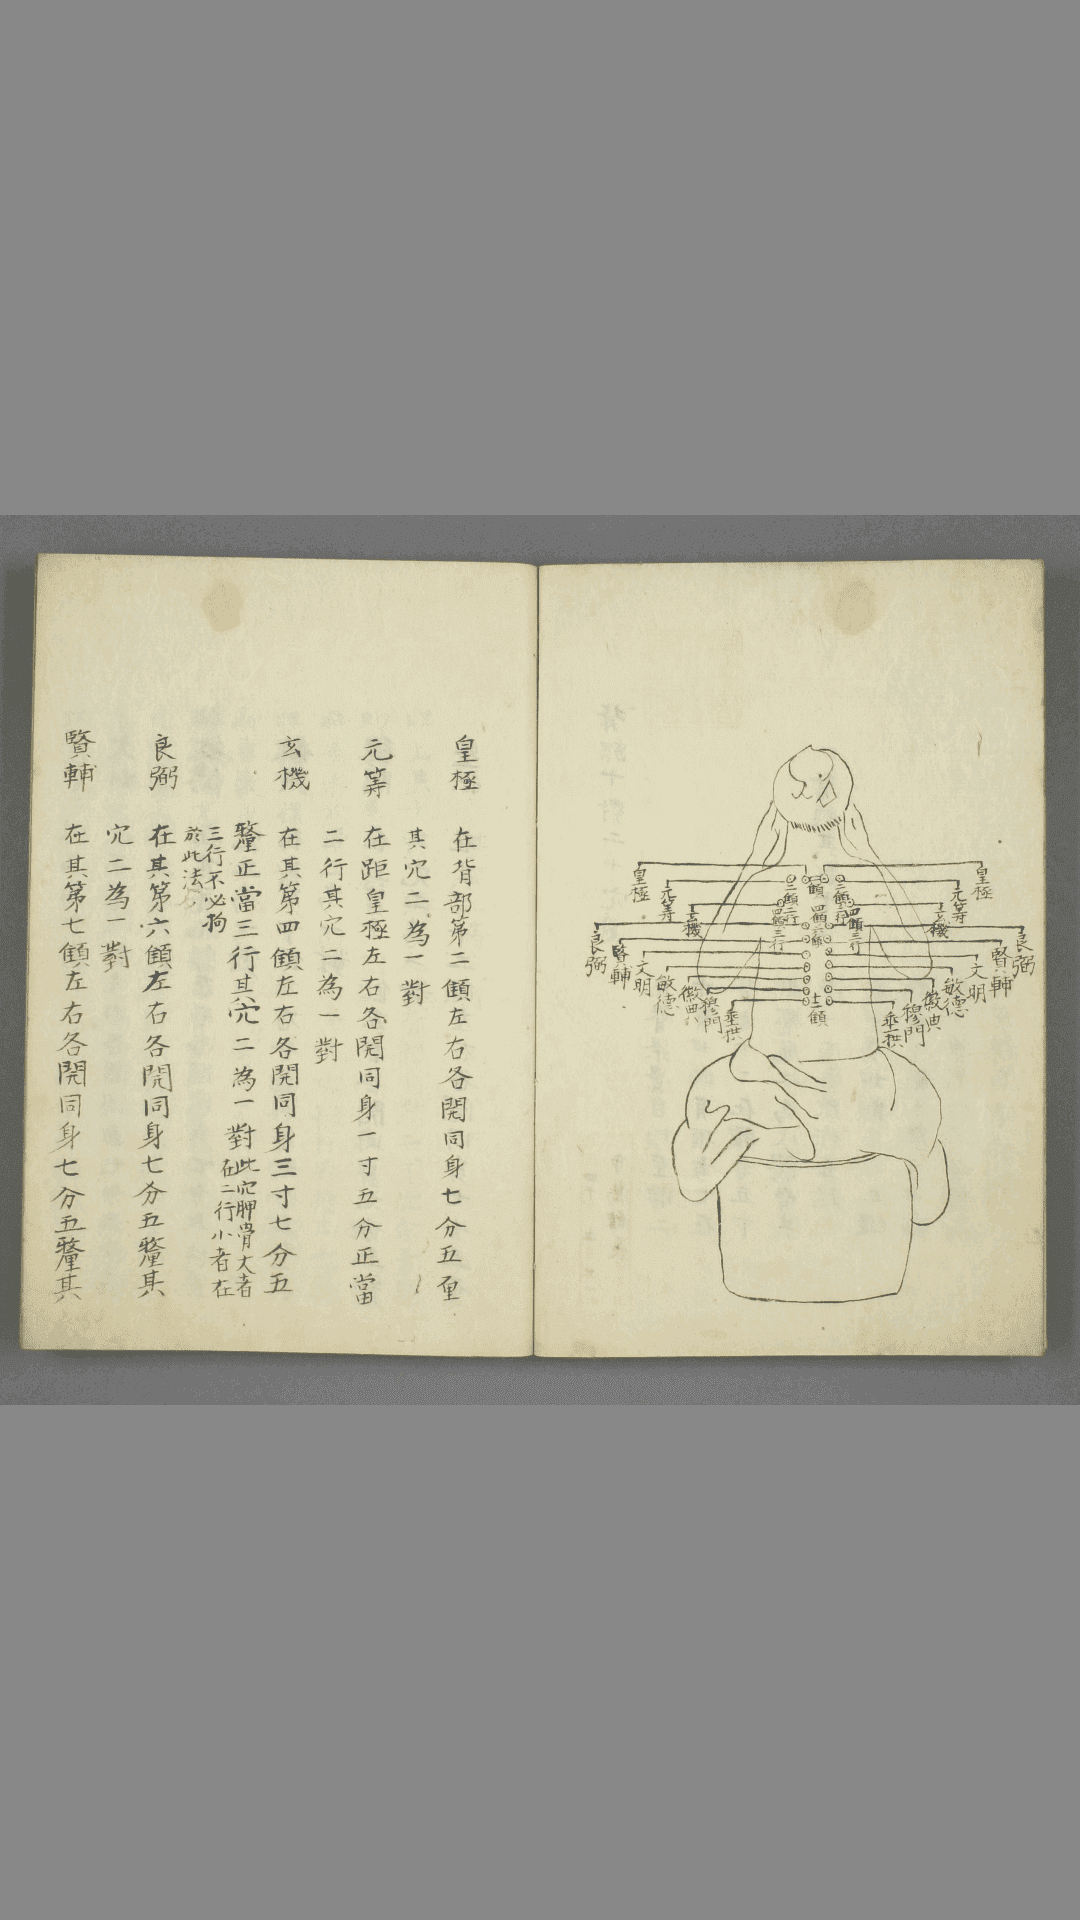 皇極
元等
玄機
良弼
賢輔
文明
敏德
徽典
穆門
垂拱
二顀二行
四顀三行
四顀
二顀二行
四顀三行
皇極
元等
玄機
良弼
賢輔
文明
敏德
徽典
穆門
垂拱
皇極 在背部第二顀左右各開同身七分五厘
其穴二為一對
元等 在距皇極左右各開同身一寸五分正當
二行其穴二為一對
玄機 在其第四顀左右各開同身三寸七分五
釐正當三行其穴二為一對此穴胛骨大者
在二行小者在
三行不必拘
於此法
良弼 在其第六顀左右各開同身七分五釐其
穴二為一對
賢輔 在其第七顀左右各開同身七分五釐其